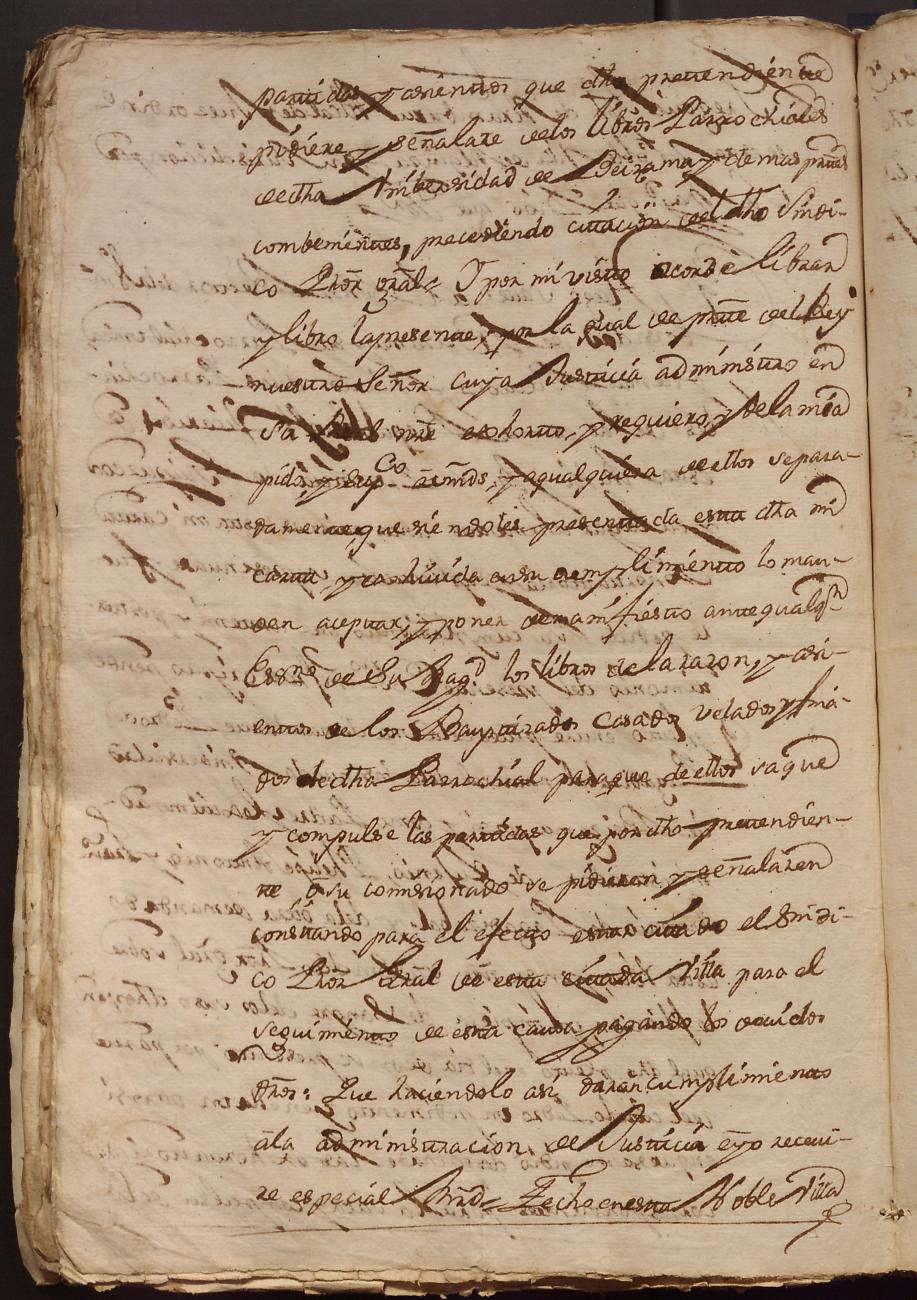 partidas y asientos que dho pretendiente
pidiere y señalare de los libros Parrochiales
de dha Vnibersidad de Beizama y demas partes
combenientes, precediendo citación del dho Sindi-
co Pror gral. Y por mi visto acorde librar
y libro la presente, por la qual de parte del Rey
nuestro Señor cuya Justicia administro en
su nre exhorto, y requiero, y de la mia
pido, y supco a vmds, y a qualquiera de ellos separa-
damente, que siendoles presentada esta dha mi
carta y en su cumplimiento lo man-
den aceptar, y poner de manifiesto ante qualqr
Essno de Su Magd los libros de la razon, y asi-
entos de los Bauptizados Casados Velados y fina-
dos de dha Parrochial para que de ellos saque
y compulse las partidas que por dho pretendien-
te, ó su comisionado se pidieren y señalaren
constando para el efecto estar citado el Sindi-
co Pror Gral de esta citada Villa para el
seguimiento de esta causa pagando los devidos
dros: Que haciendolo asi, daran cumplimiento
ála administracion de Justicia é yo recevi-
re especial Mrd. Fecho en esta Noble Villa